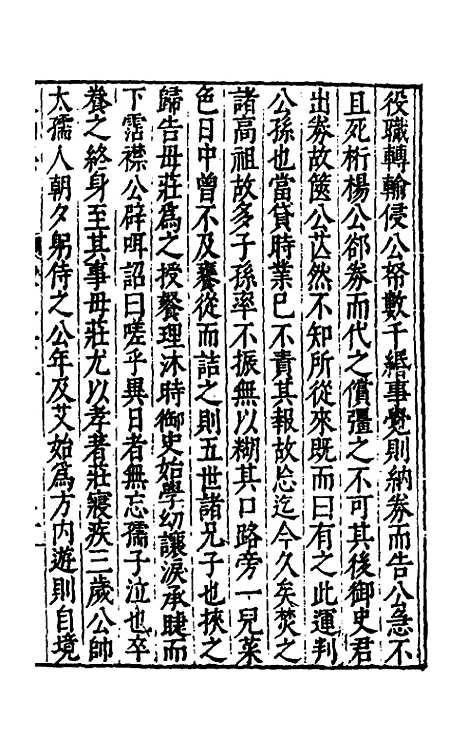 役職轉輸侵公帑數千緡事覺則納劵而告公急不
且死桁楊公郤劵而代之償彊之不可其後御史君
出劵故篋公茫然不知所從來既而曰有之此運判
公孫也當貸時業已不責其報故忘迄今久矣焚之
諸高祖故多子孫率不振無以糊其口路旁一兒菜
色日中曾不及饔從而詰之則五世諸兄子也挾之
歸告毋莊爲之授餐理沐時御史始學幼讓淚承睫而
下霑襟公辟咡詔曰嗟乎異日者無忘孺子泣也卒
養之終身至其事毋莊尤以孝著莊寢疾三歲公帥
太孺人朝夕躬侍之公年及艾始爲方内遊則自境